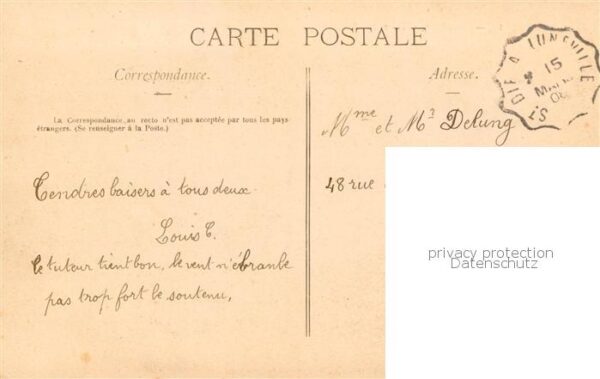 CARTE POSTALE
Correspondance.
La Correspondance, au recto n'est pas acceptée par tous les pays
étrangers. (Se renseigner à la Poste.)
Tendres baisers à tous deux.
Louis C.
le tuteur tient bon, le vent n'ébranle
pas trop fort le soutenu,
Adresse.
Mme et Mr Delung
48 rue
ST DIE A LUNEVILLE
15
MAI
08
privacy protection
Datenschutz